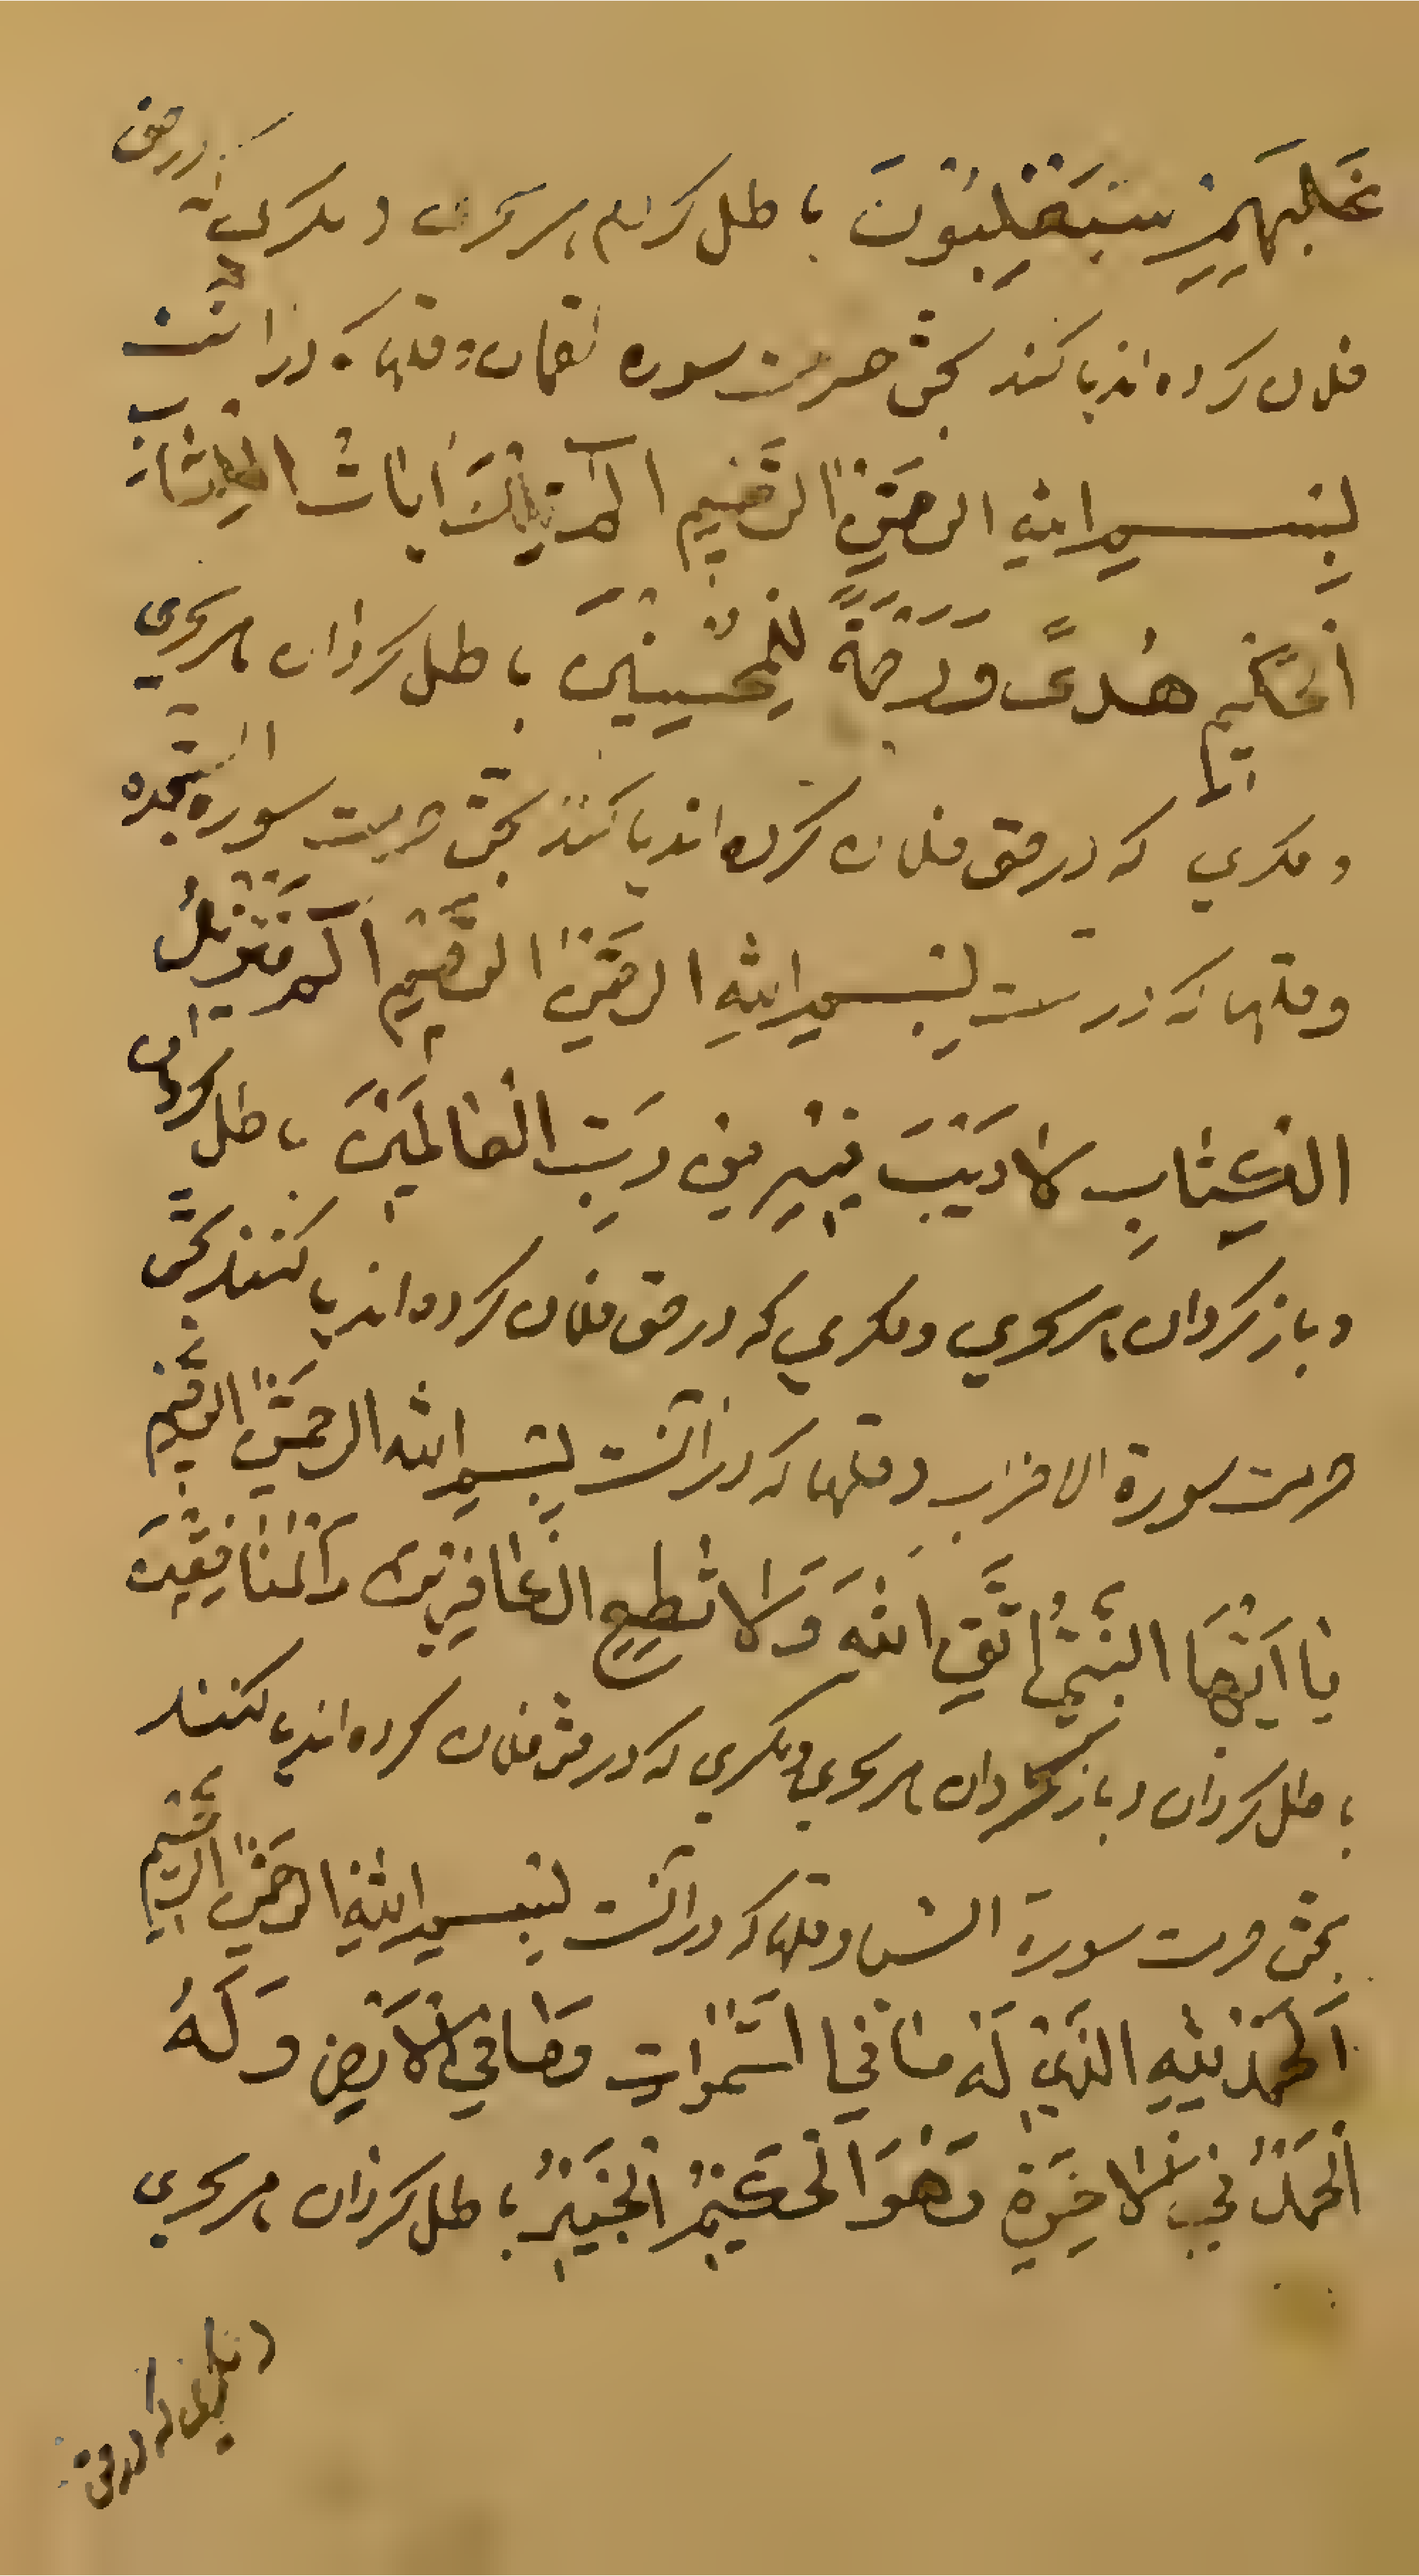 غَلَبِهِمْ سَيَغْلِبُونَ باطل کردم هر سحری و مکری که در حق
فلان کرده اند یا کنند بحق حرمت سوره لقمان و قلها که در انست
بِسْمِ اللهِ الرحمنِ الرَّحِيمِ الم تِلْكَ ايَاتُ الْكِتَابِ
الْحَكِيمِ هُدىً وَرَحْمَةً لِلْمُحْسِنِينَ باطل کردان هر سحری
و مکری که در حق فلان کرده اند یا کنند بحق حرمت سوره السجده
و قلها که در ست بِسْمِ اللهِ الرحمنِ الرَّحِيمِ الم تَنْزِيلُ
الْكِتَابِ لَا رَيْبَ فِيهِ مِنْ رَبِّ الْعَالَمِينَ باطل کردان
و باز کردان هر سحری و مکری که در حق فلان کرده اند یا کنند بحق
حرمت سورة الاحزاب و قلها که در انست بِسْمِ الله الرحمنِ الرَّحِيمِ
يَا اَيُّهَا النَّبِيُّ اتَّقِ اللهَ وَلَا تُطِعِ الْكَافِرِينَ وَالْمُنَافِقِينَ
باطل کردان و باز کردان هر سحری و مکری که در حق فلان کرده اند یا کنند
بحق حرمت سورة السبا و قلها که در انست بِسْمِ اللهِ الرحمنِ الرَّحِيمِ
اَلْحَمْدُ لِلهِ الَّذِي لَهُ مَا فِي السَّمَوَاتِ وَمَا فِي الْاَرْضِ وَلَهُ
الْحَمْدُ فِي الْاخِرَةِ وَهُوَ الْحَكِيمُ الْخَبِيرُ باطل کردان هر سحری
و مکری که در حق